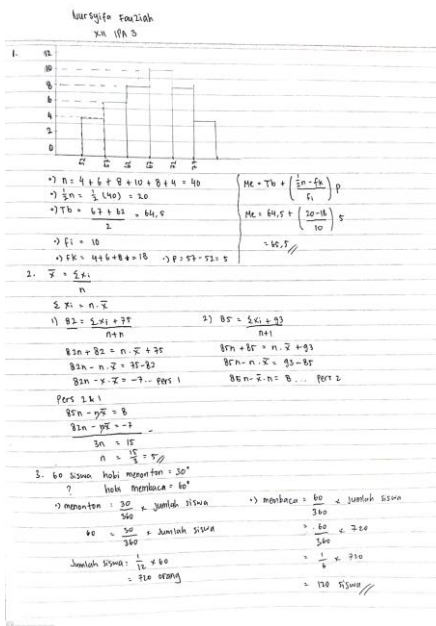 Nursyifa Fauziah
XII IPA 3
1.
12
10
8
6
4
2
0
•) n = 4 + 6 + 8 + 10 + 8 + 4 = 40
•) 1/2 n = 1/2 (40) = 20
•) Tb = 67 + 62 / 2 = 64,5
•) fi = 10
•) FK = 4+6+8 = 18 •) P = 57 - 52 = 5
Me = Tb + (1/2n - fk / fi) P
Me = 64,5 + (20-18 / 10) 5
= 65,5 //
2. x̄ = Σxi / n
Σ xi = n . x̄
1) 82 = Σxi + 75 / n+n
82n + 82 = n . x̄ + 75
82n - n . x̄ = 75-82
82n - x . x̄ = -7 ... pers 1
2) 85 = Σxi + 93 / n+1
85n + 85 = n . x̄ + 93
85n - n . x̄ = 93 - 85
85n - x̄ . n = 8 ... pers 2
Pers 2 & 1
85n - nx̄ = 8
82n - nx̄ = -7
3n = 15
n = 15/3 = 5 //
3. 60 siswa hobi menonton = 30°
? hobi membaca = 60°
•) menonton = 30/360 x jumlah siswa
60 = 30/360 x jumlah siswa
Jumlah siswa = 1/12 x 60
= 720 orang
•) membaca = 60/360 x jumlah siswa
= 60/360 x 720
= 1/6 x 720
= 120 siswa //